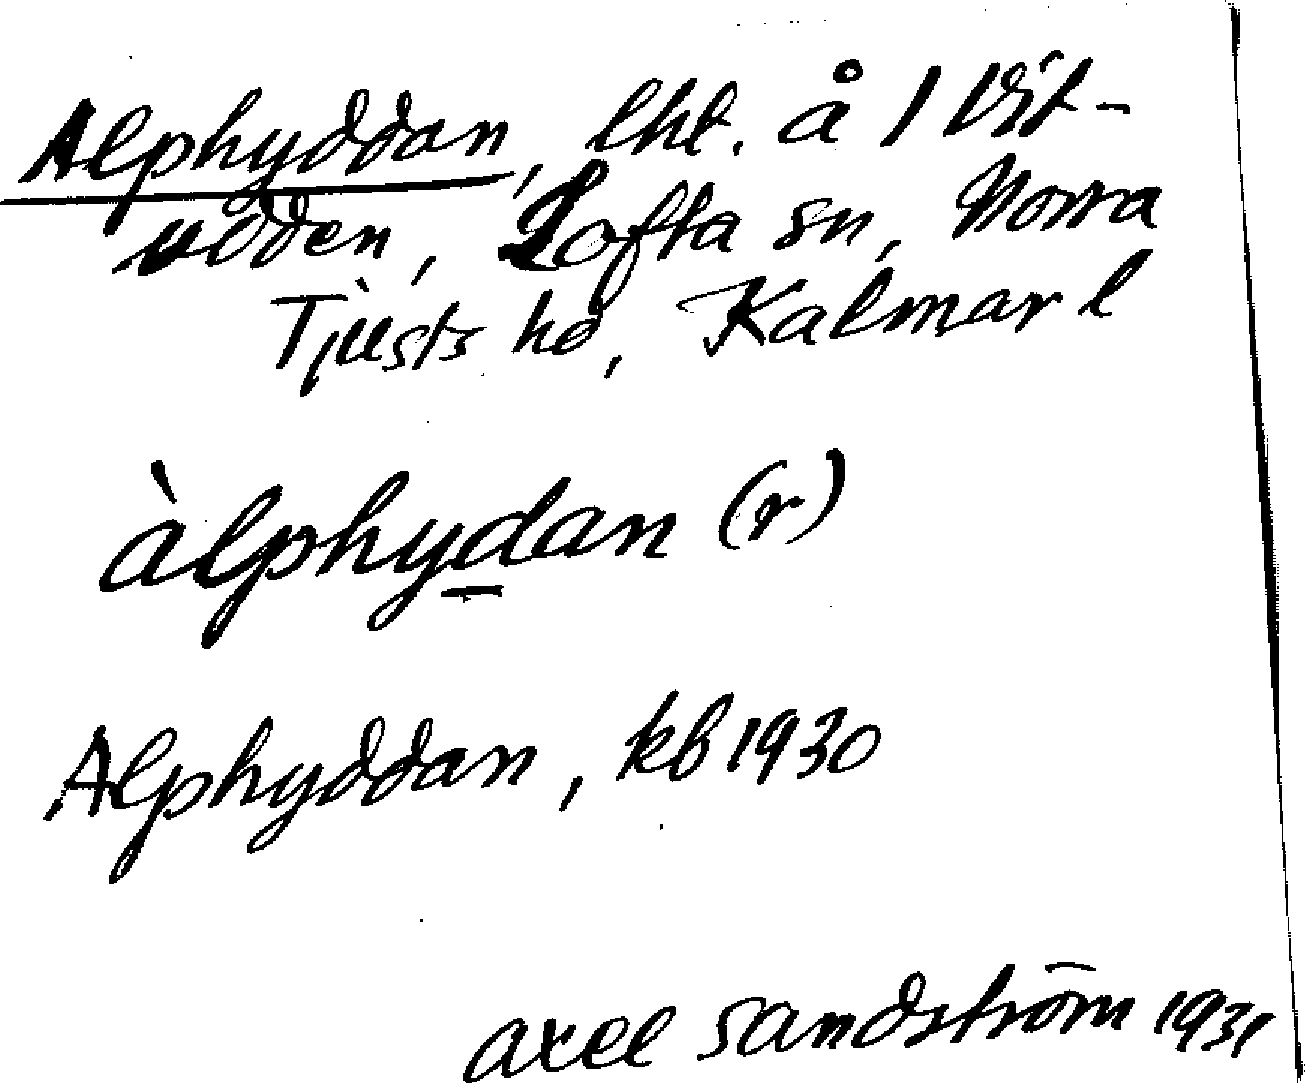 Alphyddan, lht. å 1 Vit-
udden, Lofta sn, Norra
Tjusts hd, Kalmar l
àlphydan (r)
Alphyddan, kb 1930
axel sandström 1931